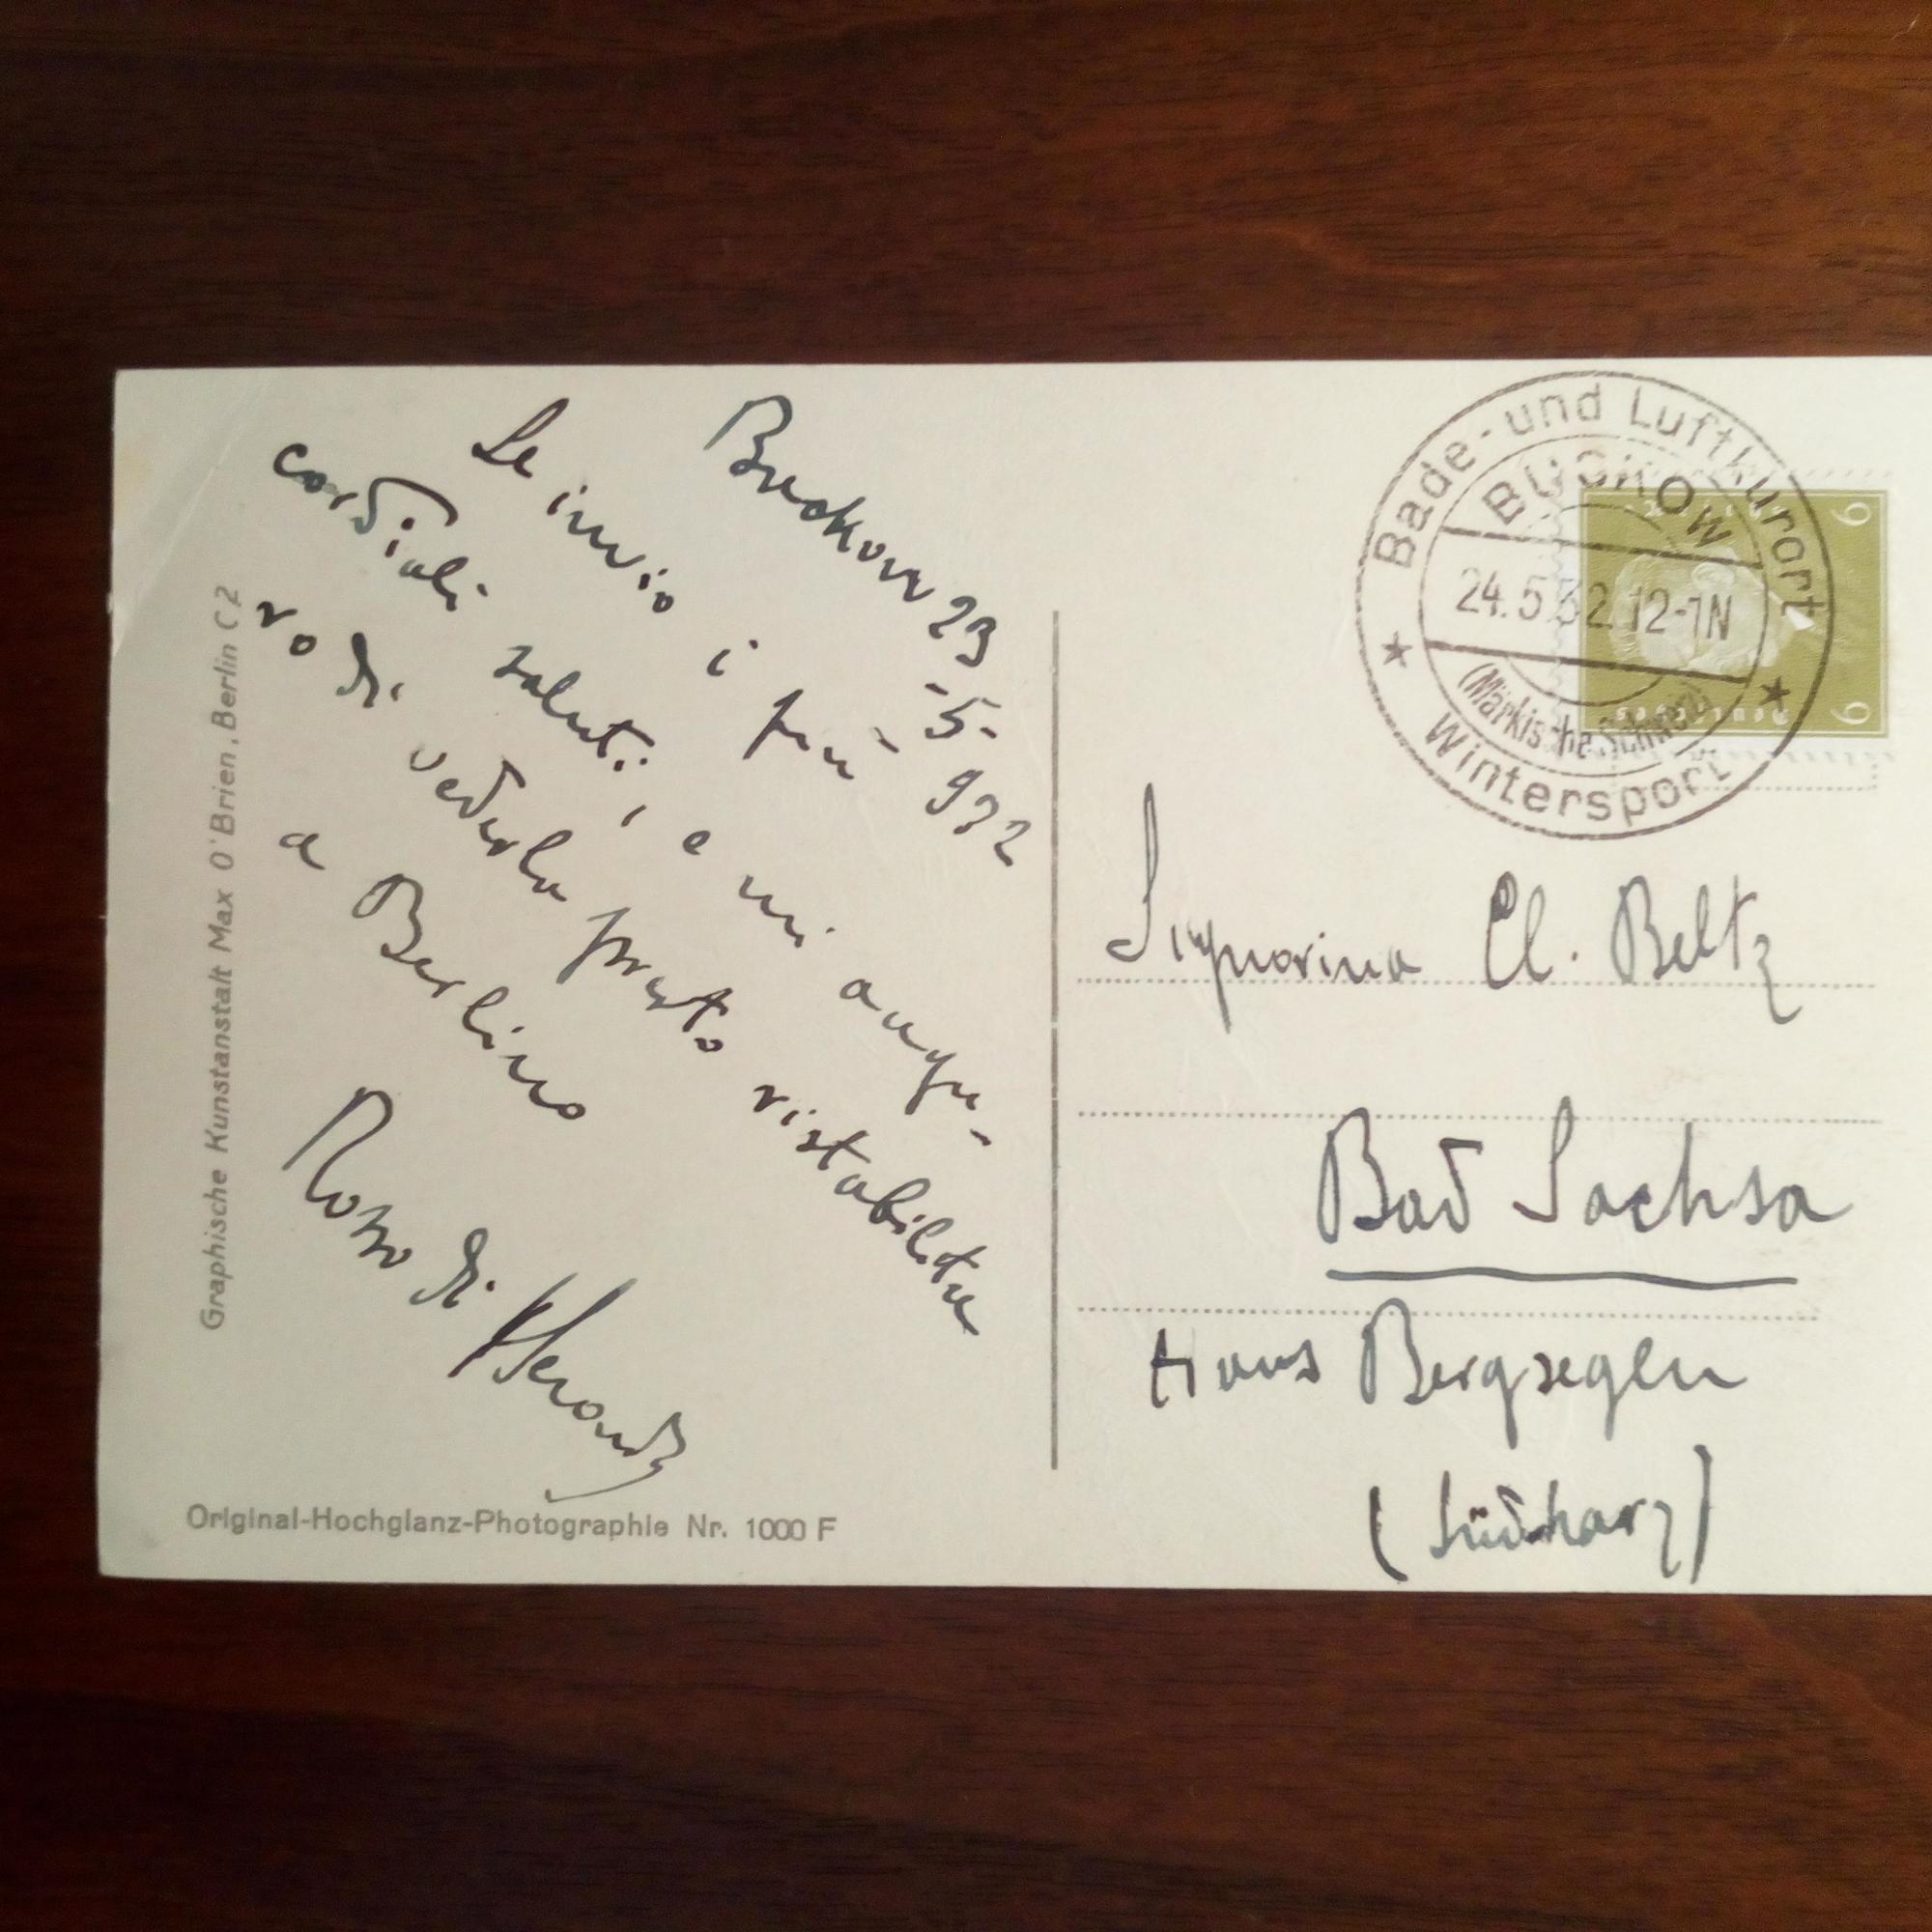 Buckow 23-5-932
Le invio i più
cordiali saluti, e mi augu-
ro di vederla presto ristabilita
a Berlino
di
Graphische Kunstanstalt Max O'Brien, Berlin C 2
Original-Hochglanz-Photographie Nr. 1000 F
Bade- und Luftkurort
BUCKOW
24.5.32.12-1N
(Märkische Schweiz)
Wintersport
6
6
Signorina El. Beltz
Bad Sachsa
Haus Bergsegen
(Südharz)